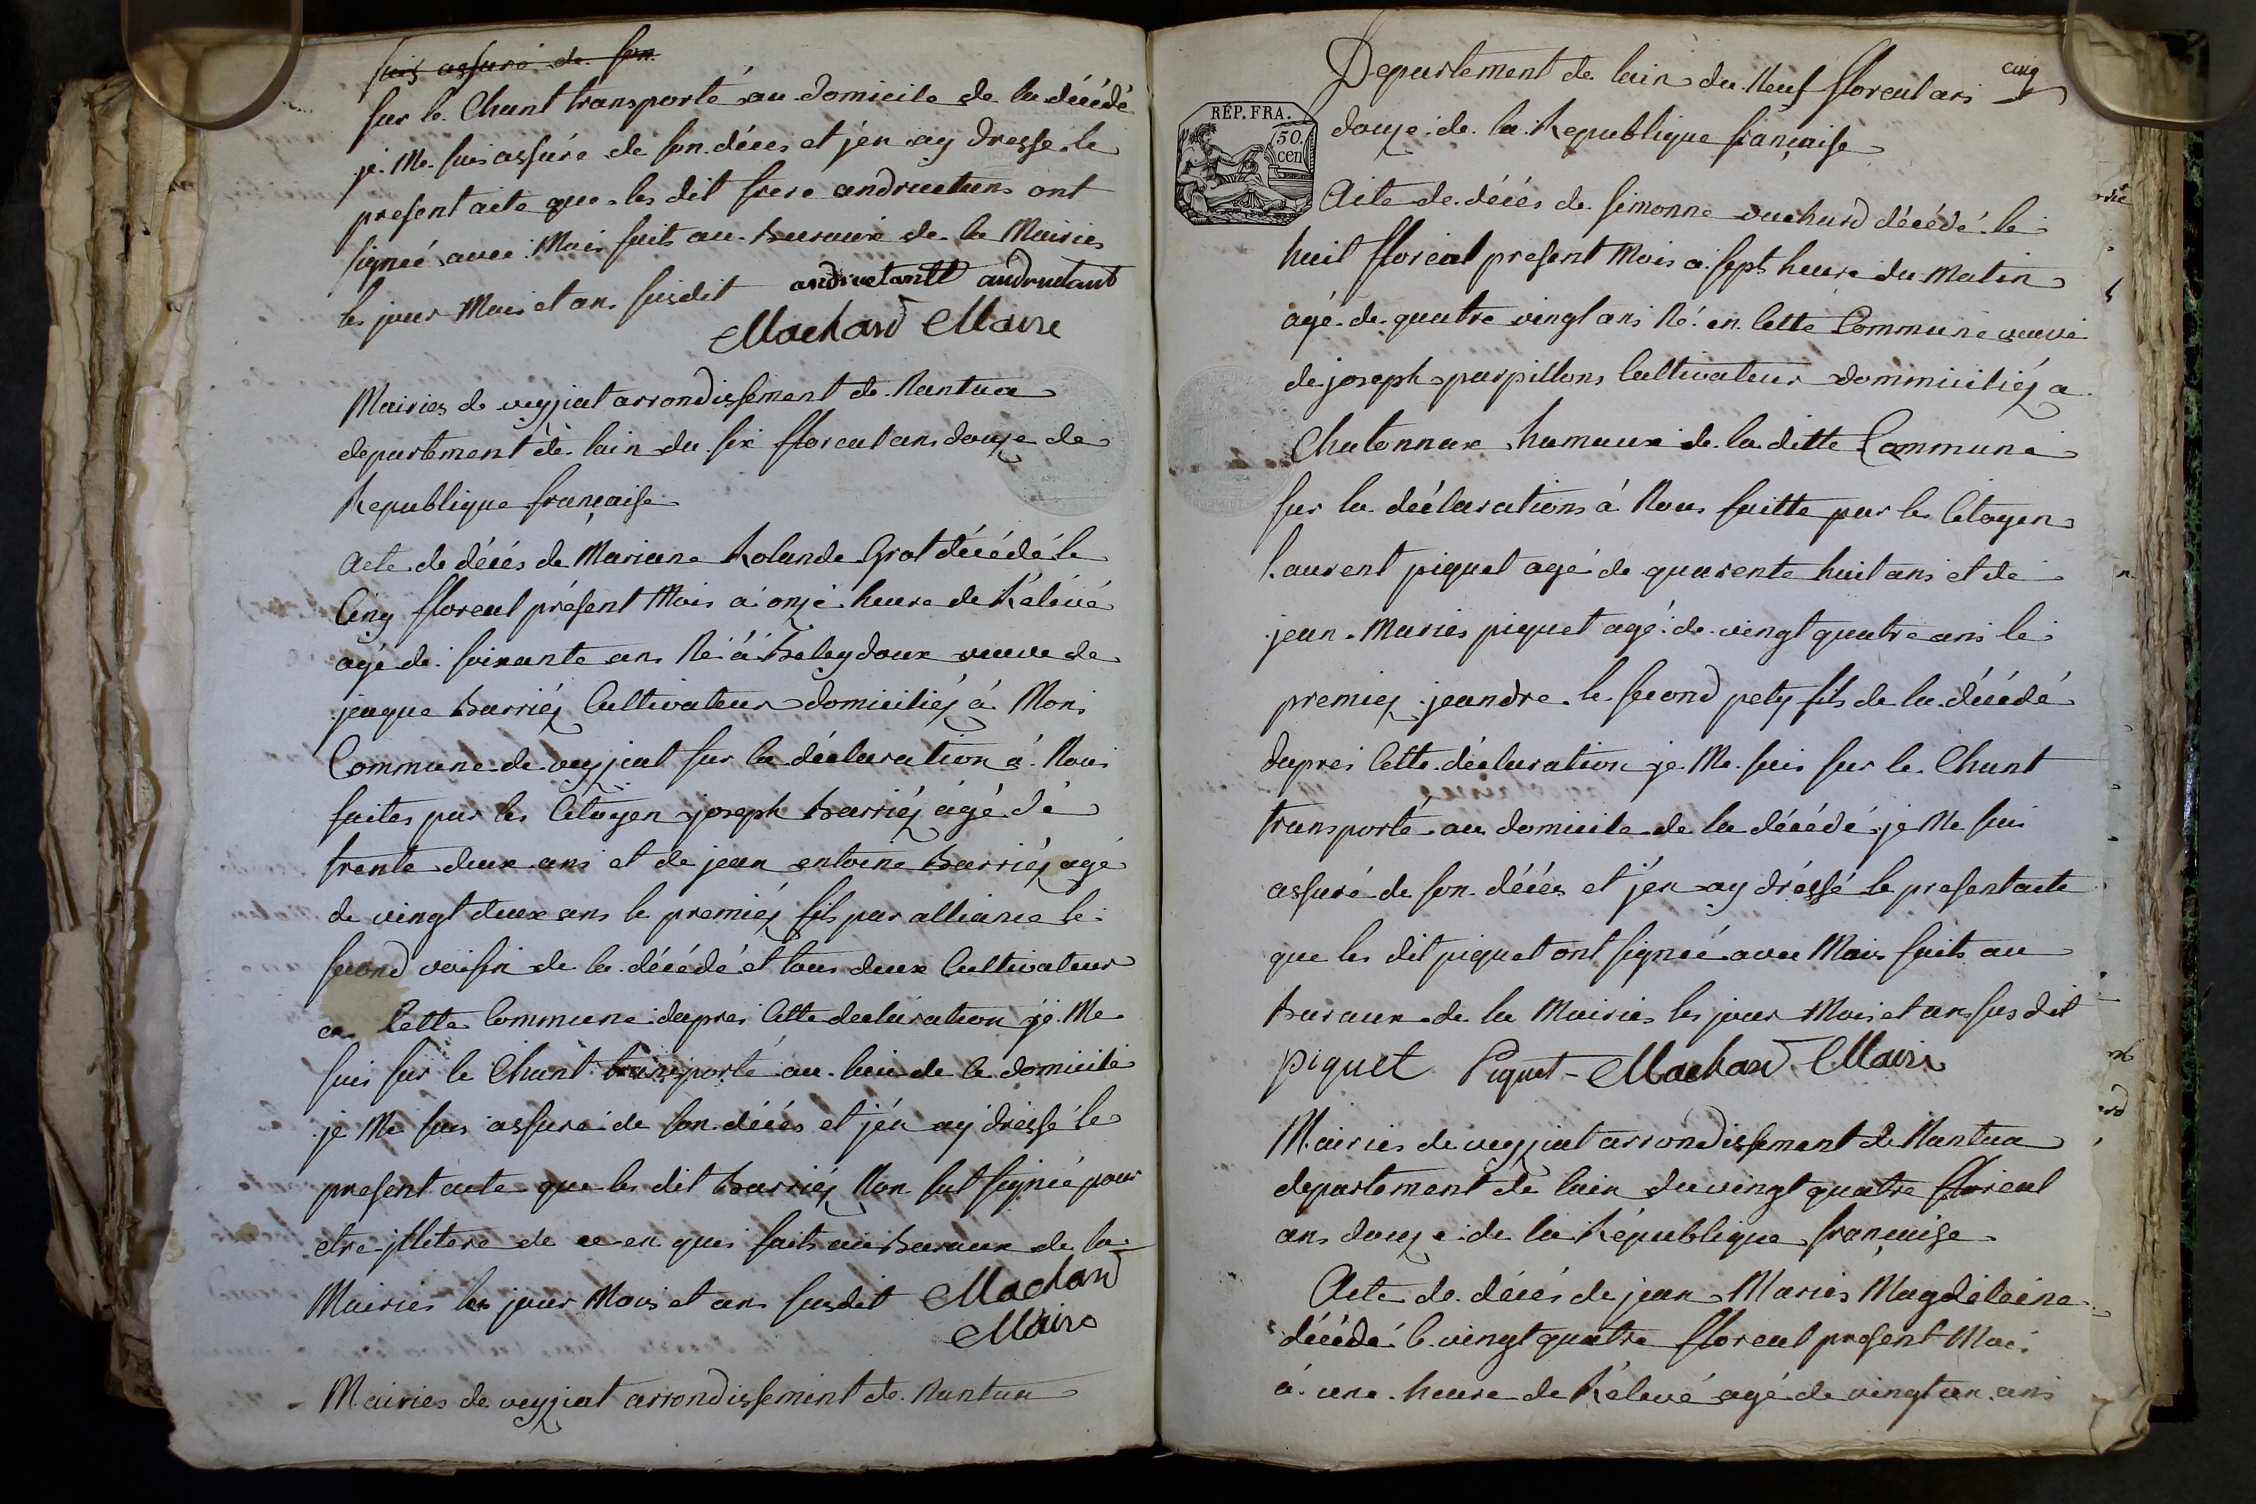 suis assuré de son
sur le Chant transporté au domicile de la décédé
je Me suis assuré de son décés et j'en ay dressé le
present acte que les dit frere andruetans ont
signéé avec Mois faits au buraux de la Mairies
les jour Mois et ans susdit andruetantt andruetant
Machard Maire
Mairies de veyziat arrondissement de Nantua
departement de lain du six floreal ans douze de
Republique française
Acte de décés de Mariane Rolande Grot décédé le
Cinq floreal présent Mois à onze heure de Rélevé
agé de soixante ans Né à Beleydoux veuve de
jeaque Barriéz Cultivateur domiciliéz à Mons
Commune de veyziat sur la déclaration à Nous
faites par les Citoyen joseph Barriéz agé de
trente deux ans et de jean entoine Barriéz agé
de vingt deux ans le premiéz fils par alliance le
second voisin de la décédé et tous deux Cultivateur
en Cette Commune dapres Cette declaration je Me
suis sur le Chant transporté au lieu de le domicile
je Me suis assuré de son décés et j'en ay dressé le
present acte que les dit Barriéz Non sut signéé pour
etre jlitere de ce en quis faits au buraux de la
Mairies les jour Mois et ans susdit Machard
Maire
Mairies de veyziat arrondissement de Nantua
cinq
Departement de lain du Neuf floreal ans
RÉP. FRA.
50.
cen
douze de la Republique française
Acte de décés de simonne vuchard décédé le
huit floreal present Mois à sept heure du Matin
agé de quatre vingt ans Né en Cette Commune veuve
de joseph parpillons Cultivateur dommiciliéz a
Chatonnax hamaux de la ditte Commune
sur la déclarations à Nous faitte par les Citoyen
Laurent piquet agé de quarente huit ans et de
jean Maries piquet agé de vingt quatre ans le
premiez jeandre le second petiz fils de la décédé
dapres Cette déclaration je Me suis sur le Chant
transporté au domicile de la décédé je Me suis
assuré de son décés et j'en ay dréssé le present acte
que les dit piquet ont signéé avec Mois faits au
buraux de la Mairies les jour Mois et ans sus dit
piquet Piquet Machard Maire
Mairies de veyziat arrondissement de Nantua
departement de lain du vingt quatre floreal
ans douze de la République française
Acte de décés de jean Maries Magdéleine
décédé le vingt quatre floreal present Mois
à une heure de Rélevé agé de vingt un ans